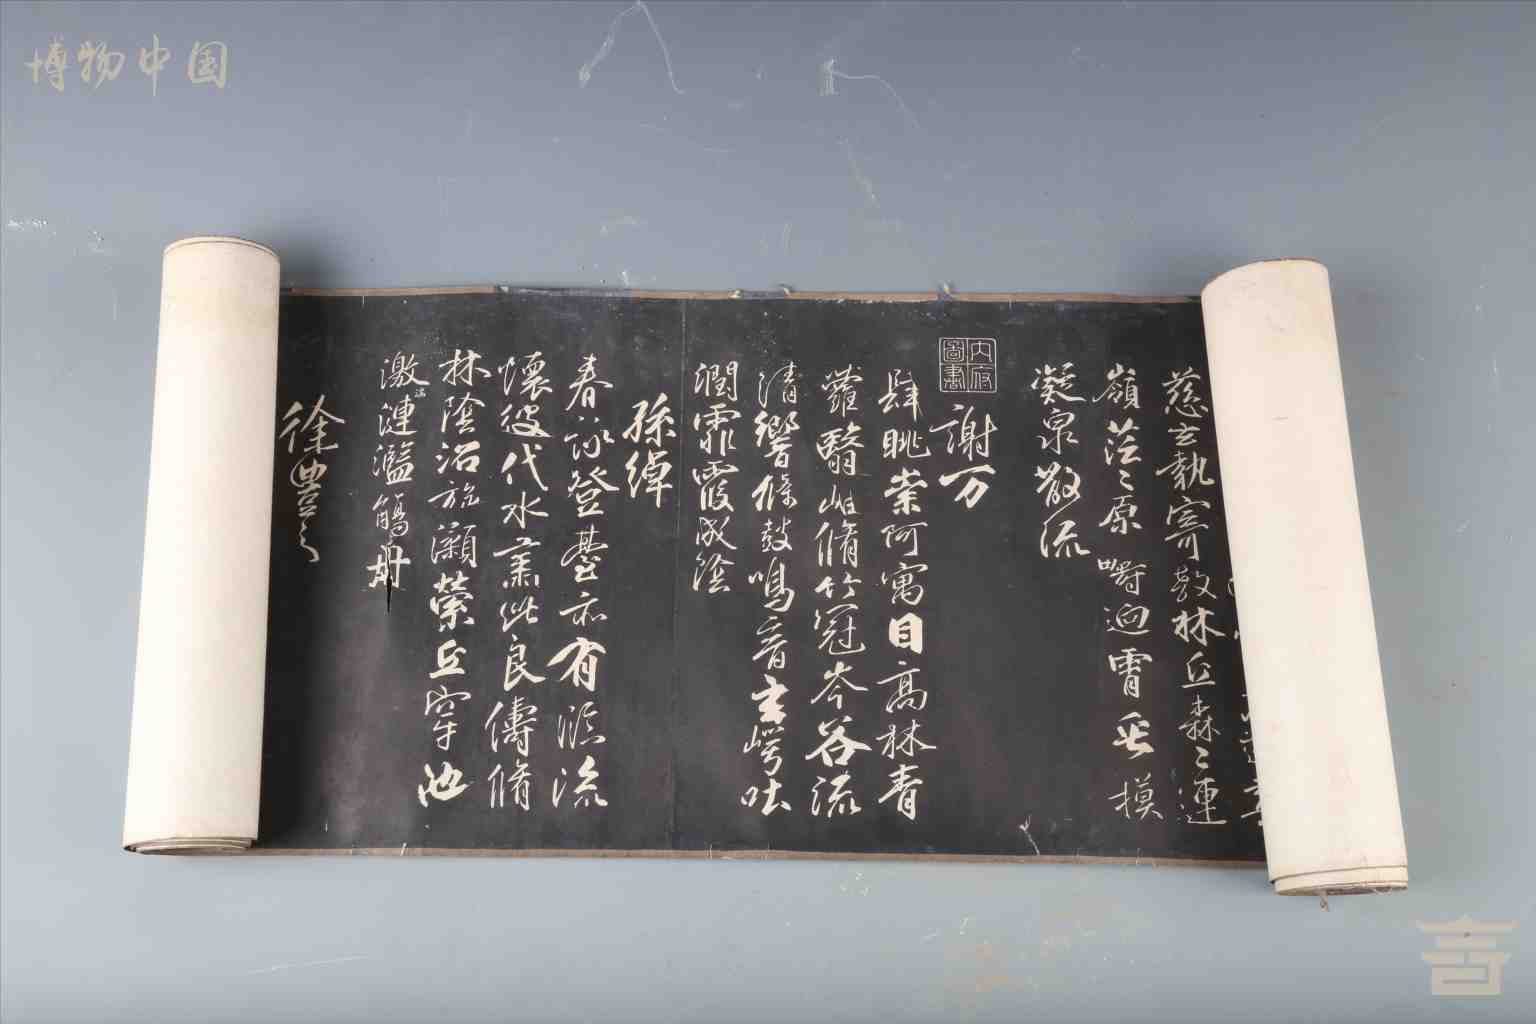 慈玄執寄敬林丘森々連
嶺茫々原疇迥霄垂
凝泉散流
内府圖書
謝万
肆眺崇阿寓目高林青
蘿翳岫脩竹冠岑谷流
清響條鼓鳴音玄崿吐
潤霏霞成陰
孫綽
春詠登臺亦有臨流
懷彼伐木肅此良儔脩
林陰沼旋瀨縈丘穿池
激湍漣濫觴舟
徐豐之
博物中国